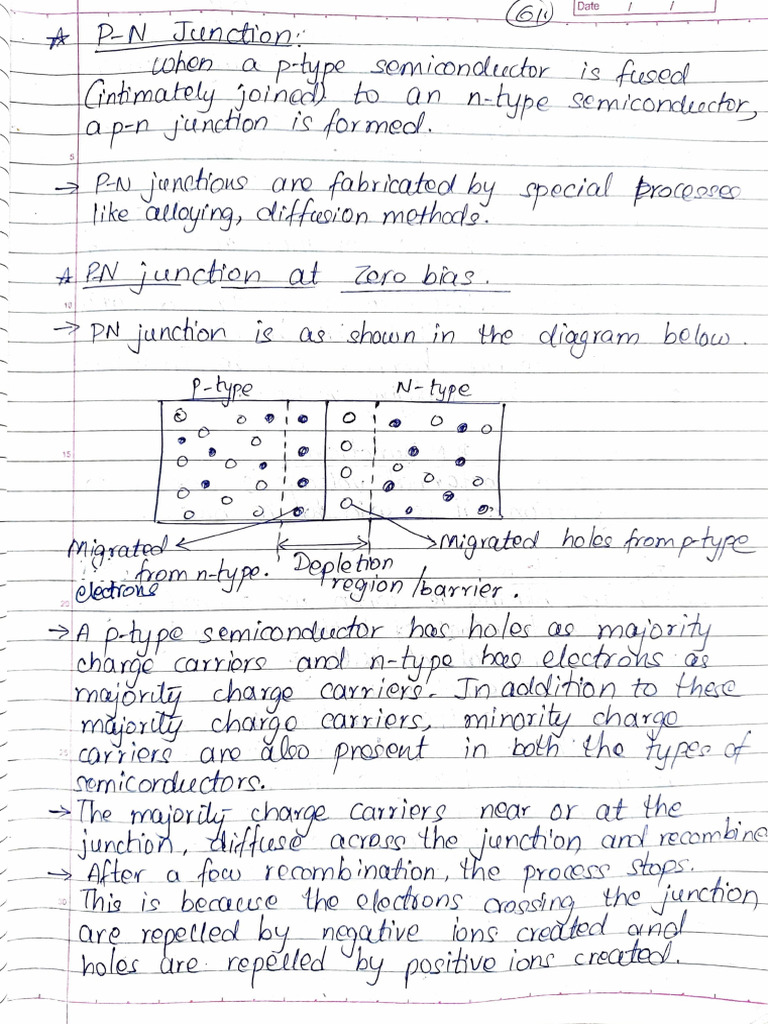 Date / /
☆ P-N Junction:
When a p-type semiconductor is fused
(intimately joined) to an n-type semiconductor,
a p-n junction is formed.
→ P-N junctions are fabricated by special processes
like alloying, diffusion methods.
☆ PN junction at Zero bias.
→ PN junction is as shown in the diagram below.
P-type N-type
Migrated electrons from n-type.
Depletion region/barrier.
Migrated holes from p-type
→ A p-type semiconductor has holes as majority
charge carriers and n-type has electrons as
majority charge carriers. In addition to these
majority charge carriers, minority charge
carriers are also present in both the types of
semiconductors.
→ The majority charge carriers near or at the
junction, diffuse across the junction and recombine
→ After a few recombination, the process stops.
This is because the electrons crossing the junction
are repelled by negative ions created and
holes are repelled by positive ions created.